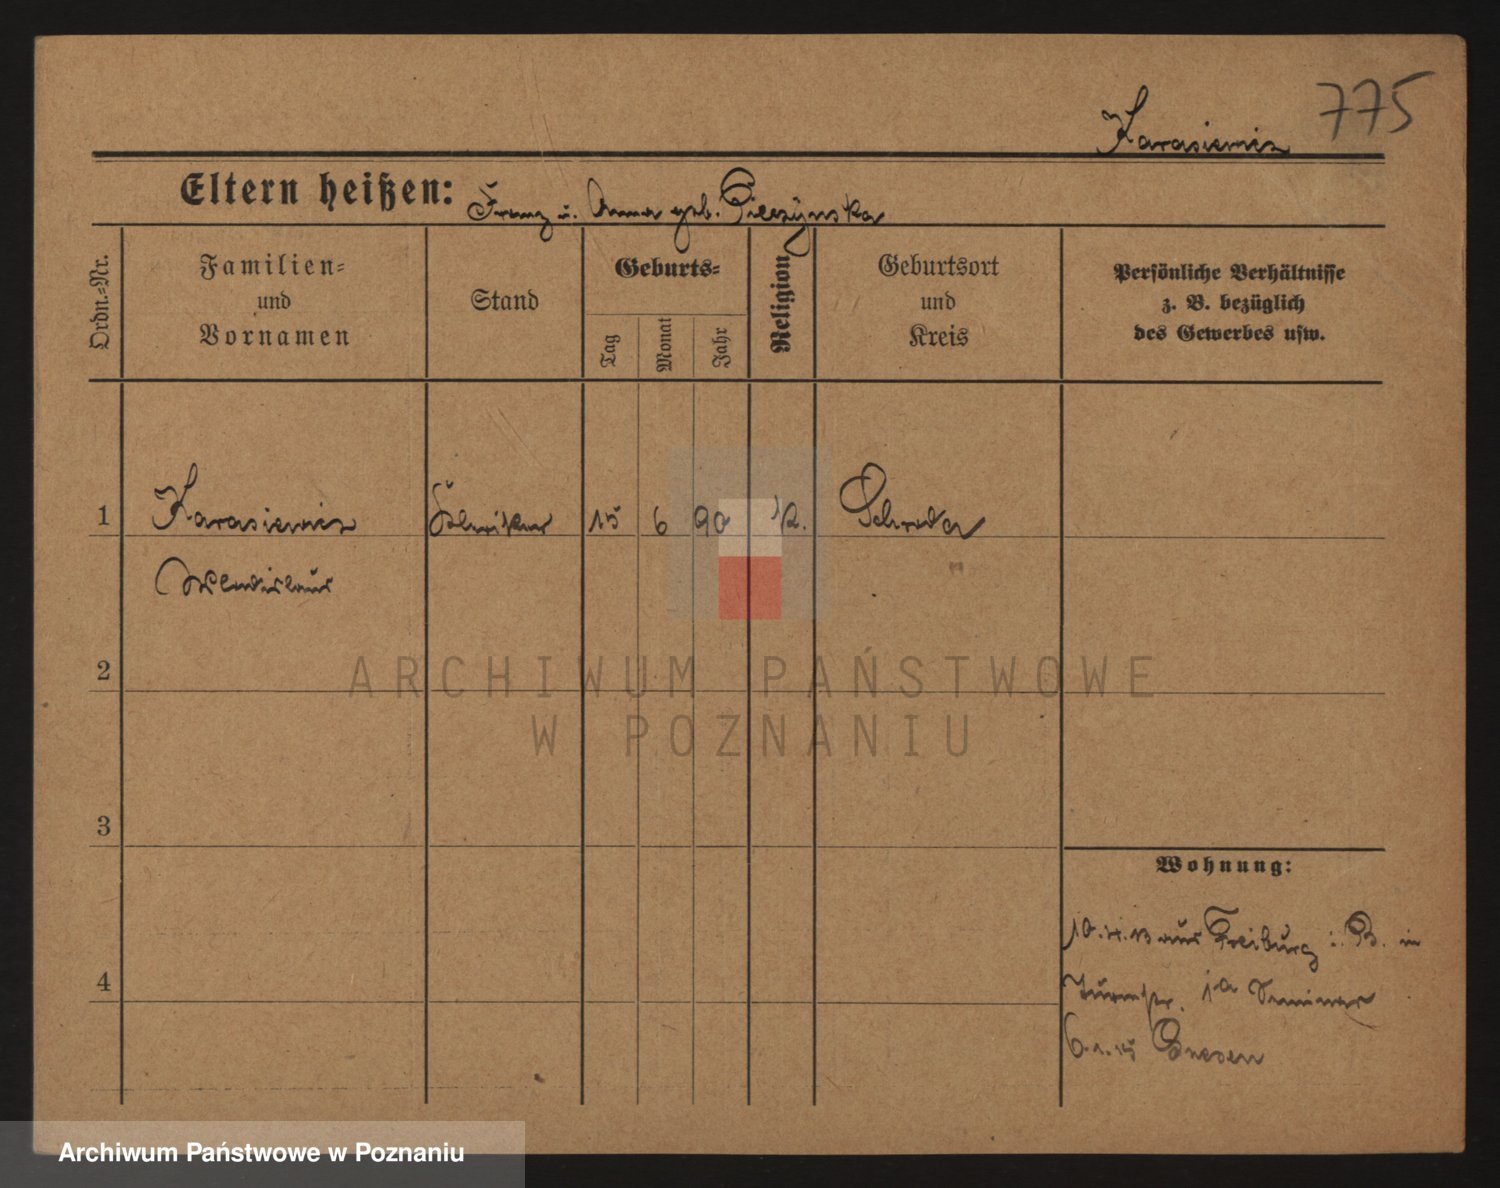 775
Karasiewicz
Eltern heißen: Franz u. Anna geb. Pieczynska
Ordn.-Nr.
Familien-
und
Vornamen
Stand
Geburts-
Tag
Monat
Jahr
Religion
Geburtsort
und
Kreis
Persönliche Verhältnisse
z. B. bezüglich
des Gewerbes usw.
1 Karasiewicz Kleriker 15 6 90 k. Schroda
Wladislaus
2
ARCHIWUM PAŃSTWOWE
W POZNANIU
3
Wohnung:
aus Freiburg i. B. in
4
Turmstr. 1a Seminar
6.1.15 Gnesen
Archiwum Państwowe w Poznaniu